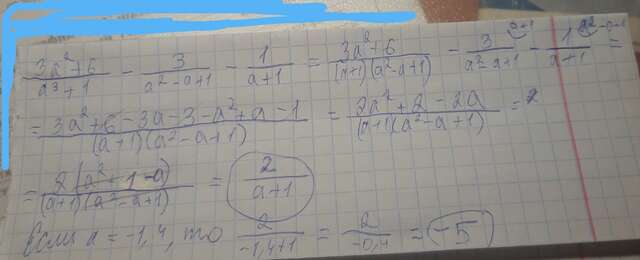 (3a²+6)/(a³+1) - 3/(a²-a+1) - 1/(a+1) = (3a²+6)/((a+1)(a²-a+1)) - 3/(a²-a+1) ⁽ᵃ⁺¹ - 1/(a+1) ⁽ᵃ²⁻ᵃ⁺¹ =
= (3a²+6-3a-3-a²+a-1)/((a+1)(a²-a+1)) = (2a²+2-2a)/((a+1)(a²-a+1)) =
= 2(a²+1-a)/((a+1)(a²-a+1)) = 2/(a+1)
Если a=-1,4, то 2/(-1,4+1) = 2/(-0,4) = -5